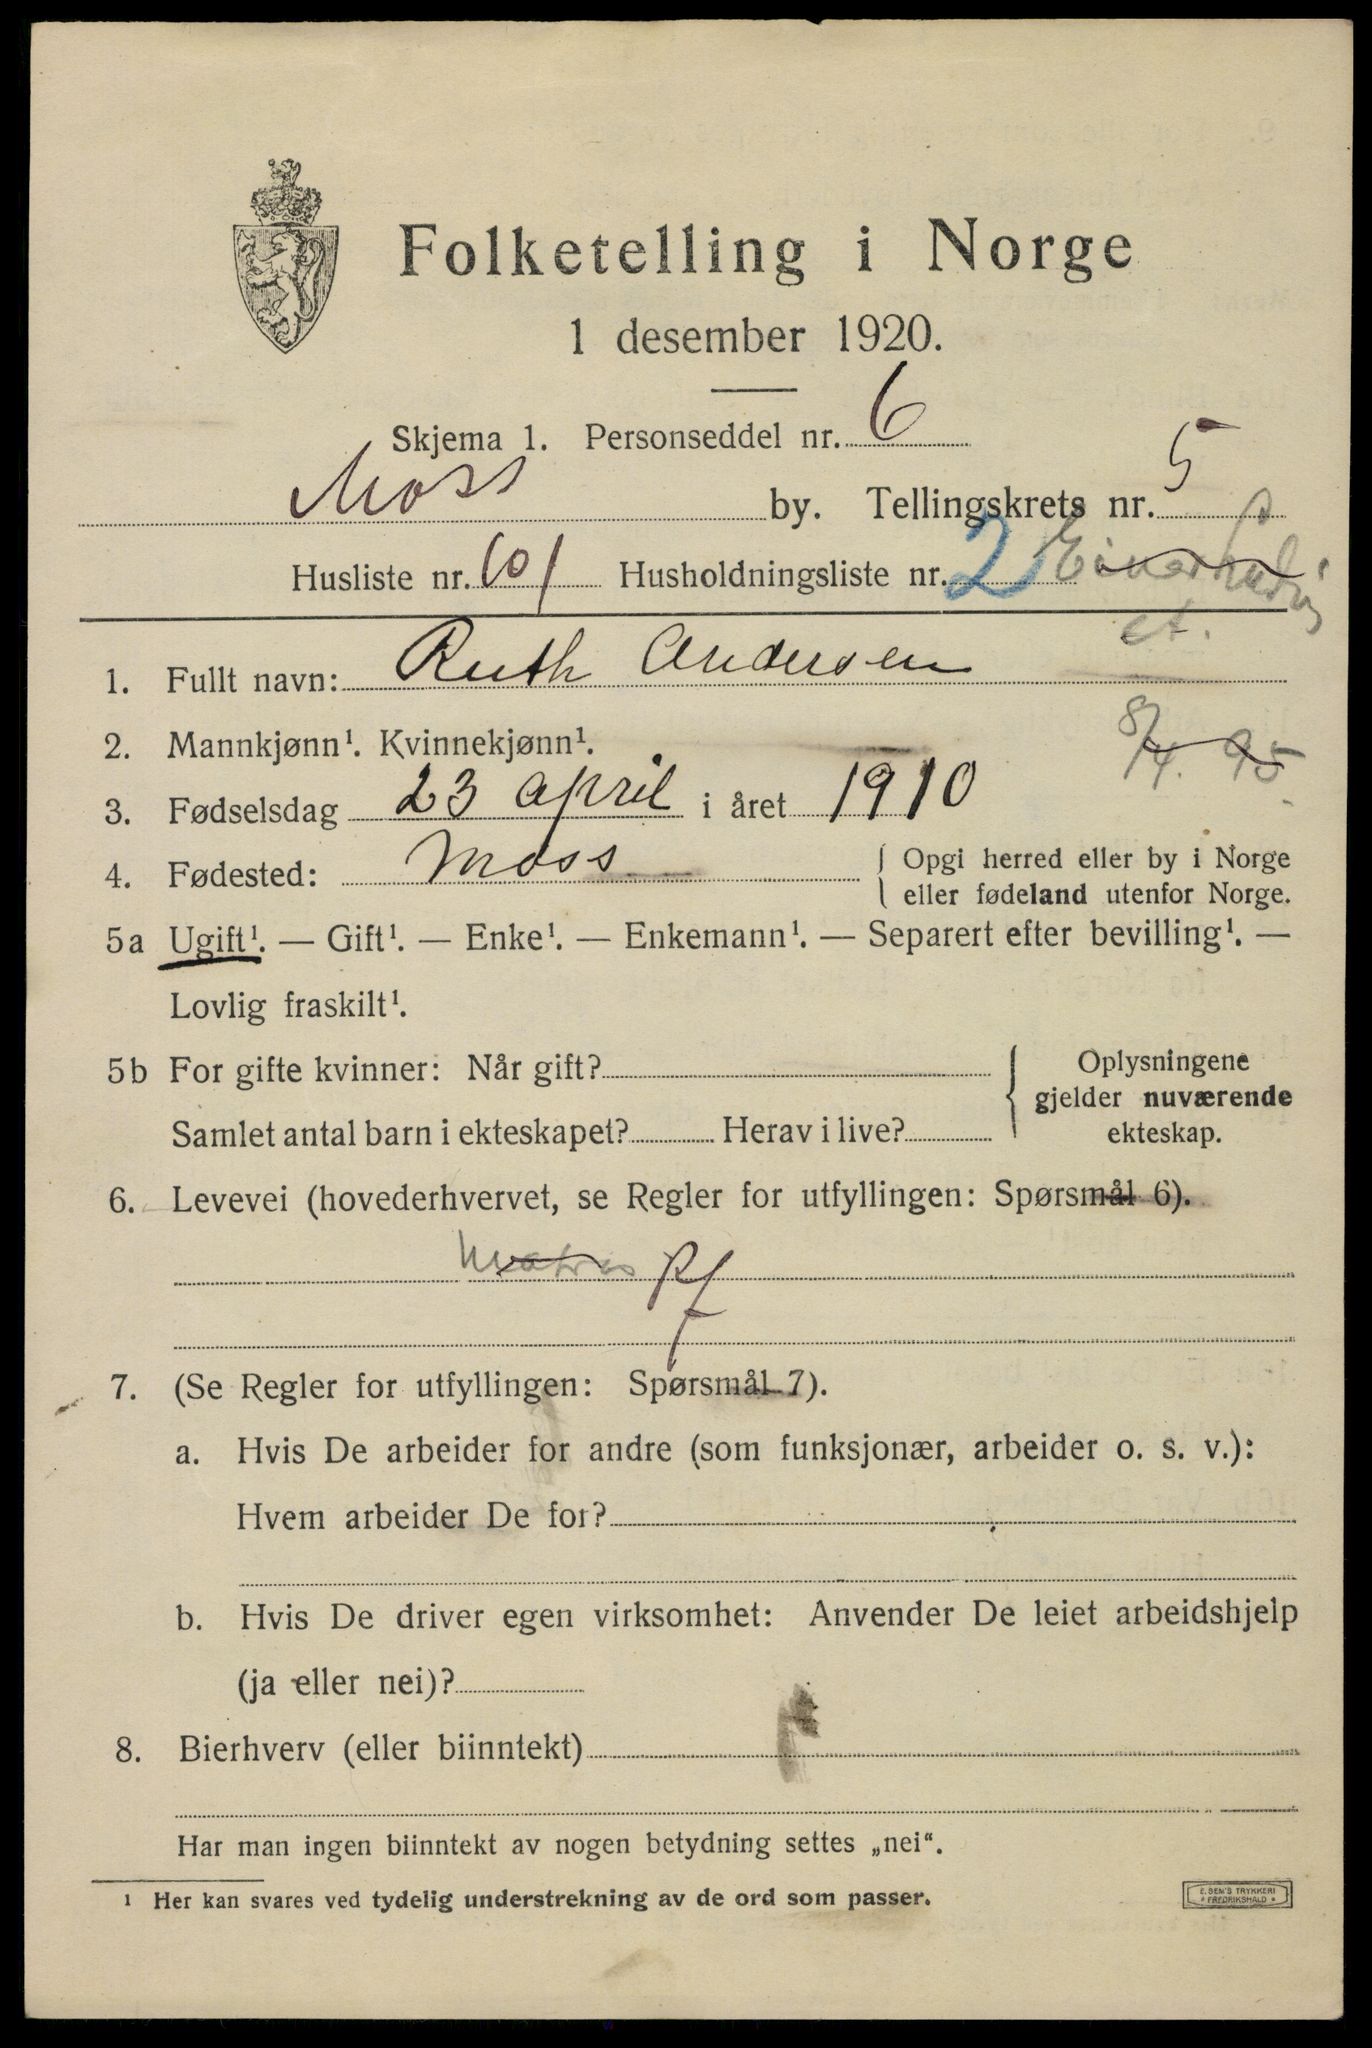 Folketelling i Norge
1 desember 1920.
Skjema 1. Personseddel nr. 6
Moss by. Tellingskrets nr. 5
Husliste nr. 101 Husholdningsliste nr. 2
1. Fullt navn: Ruth Andersen
2. Mannkjønn¹. Kvinnekjønn¹.
8/4. 95
3. Fødselsdag 23 april i året 1910
4. Fødested: Moss { Opgi herred eller by i Norge
eller fødeland utenfor Norge.
5a Ugift¹. — Gift¹. — Enke¹. — Enkemann¹. — Separert efter bevilling¹. —
Lovlig fraskilt¹.
5b For gifte kvinner: Når gift?
Samlet antal barn i ekteskapet? Herav i live?
{ Oplysningene
gjelder nuværende
ekteskap.
6. Levevei (hovederhvervet, se Regler for utfyllingen: Spørsmål 6).
7. (Se Regler for utfyllingen: Spørsmål 7).
a. Hvis De arbeider for andre (som funksjonær, arbeider o. s. v.):
Hvem arbeider De for?
b. Hvis De driver egen virksomhet: Anvender De leiet arbeidshjelp
(ja eller nei)?
8. Bierhverv (eller biinntekt)
Har man ingen biinntekt av nogen betydning settes „nei“.
¹ Her kan svares ved tydelig understrekning av de ord som passer.
E. SEM'S TRYKKERI
* FREDRIKSHALD *